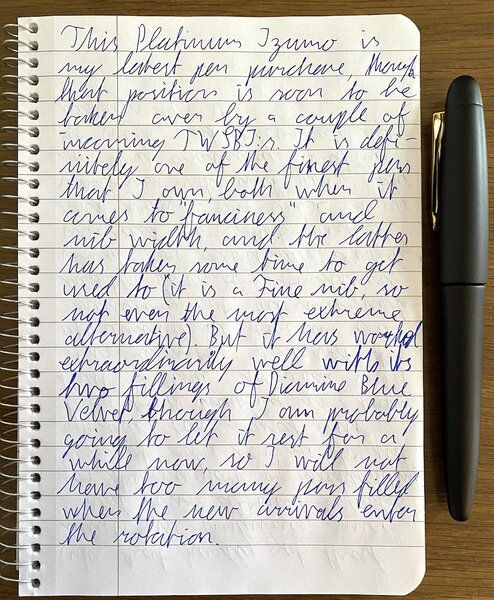 This Platinum Izumo is
my latest pen purchase, though
that position is soon to be
taken over by a couple of
incoming TWSBI:s. It is defi-
nitely one of the finest pens
that I own, both when it
comes to "fanciness" and
nib width, and the latter
has taken some time to get
used to (it is a Fine nib, so
not even the most extreme
alternative). But it has worked
extraordinarily well with its
two fillings of Diamine Blue
Velvet, though I am probably
going to let it rest for a
while now, so I will not
have too many pens filled
when the new arrivals enter
the rotation.